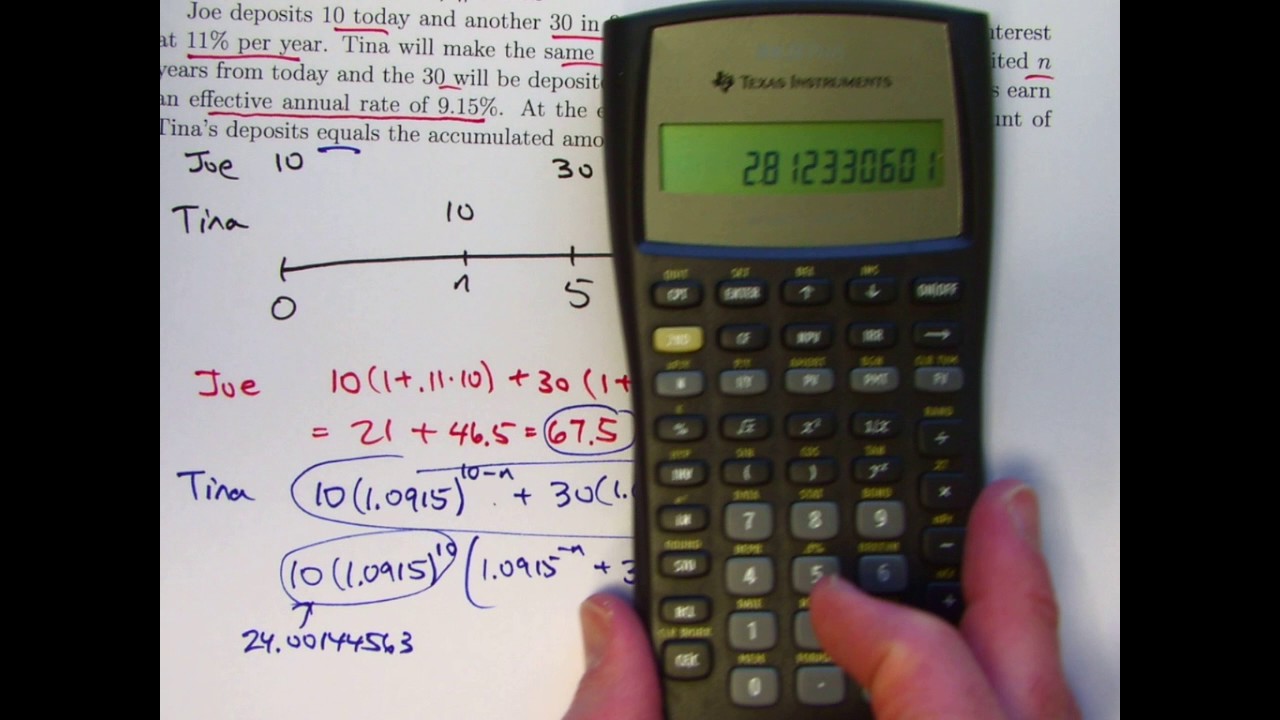 Joe deposits 10 today and another 30 in
at 11% per year. Tina will make the same
years from today and the 30 will be deposite
an effective annual rate of 9.15%. At the e
Tina's deposits equals the accumulated amo
nterest
ited n
s earn
unt of
Joe 10 30
Tina 10
0 n 5
Joe 10(1+.11·10) + 30(1+
= 21 + 46.5 = 67.5
Tina 10(1.0915)^10-n + 30(1.0
10(1.0915)^10 (1.0915^-n + 3
24.00144563
TEXAS INSTRUMENTS
2.812330601
CPT ENTER ↑ ↓ ON/OFF
2ND CF NPV IRR →
N I/Y PV PMT FV
% √x x² 1/x ÷
INV ( ) yˣ ×
LN 7 8 9 −
STO 4 5 6 +
RCL 1
CE/C 0 .